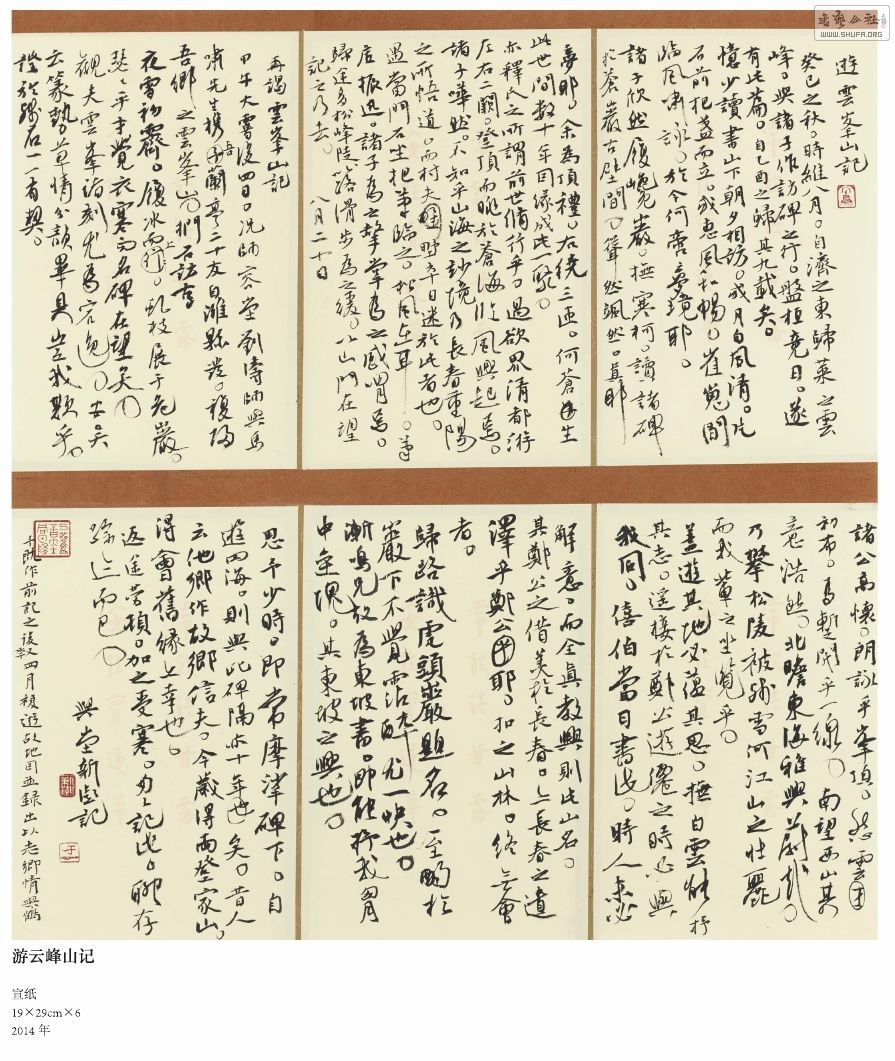 書藝公社
WWW.SHUFA.ORG
遊雲峯山記
癸巳之秋。時維八月。自濟之東歸萊之雲
峰。與諸子作訪碑之行。盤桓竟日。遂
有此篇。自乙酉之歸其九載矣。
憶少讀書山下朝夕相訪。或月白風清。
石前把盞而立。或惠風和暢。崔嵬間
臨風嘯詠。於今何啻夢境耶。
諸子欣然履巉巖。撫寒柯。讀諸碑
於蒼巖古壁間。聳然颯然。真耶
夢耶。余為頂禮。右繞三匝。何蒼生
此世間數十年因緣成此一聚。
亦釋氏之所謂前世修行乎。過欲界清都游
左右二闕。登頂而眺於蒼海臨風興起焉。
諸子嘩然。不知乎山海之妙境乃長者重陽
之所悟道。而村夫時年日迷於此者也。
遇當門石坐把筆臨之。松風在耳
居振迅。諸子為之擊掌為之感喟焉。
歸途多松峰陡路滑步為之緩。山門在望
記之乃去。 八月二十日
再謁雲峯山記
甲午大雪後四日。況師容堂劉濤師與馬
嘯先生攜吾蘭亭二十友自濰縣發。復歸
吾鄉之雲峯山上捫石話古
夜雪初霽。履冰而行。亂枝展于危巖。
瑟瑟乎才覺衣寒而名碑在望矣。
觀夫雲峯詩刻尤為宕逸。
云篆勢草情分韻畢具豈我欺乎。
證於殘石一一有契。
諸公高懷。朗詠乎峯頂。愁雲
初布。焉暫開乎一線。南望西山其
意浩然。北瞻東海雅興蔚起。
乃攀松陵被殘雪何江山之壯麗
而我輩之坐覽乎。
蓋遊其地必蘊其思。撫白雲能抒
其志。遙接於鄭公游僊之時心與
我同。僖伯當日書此。時人未必
解意。而全真教興則此山名。
其鄭公之借美於長春。亦長春之遺
澤乎鄭公耶。扣之山林。終無會
者。
歸路識虎頭巖題名。至暘於
巖下不覺霑醉尤一快也。
漸鳴兄故為東坡書。即能抒我胸
中塊。其東坡之興也。
思予少時。即常摩挲碑下。自
遊四海。則與此碑隔亦十年也矣。昔人
云他鄉作故鄉信夫。今歲得兩登家山
得會舊緣亦幸也。
返途勞頓。加之受寒。力上記此。聊存
跡亡而已。
興堂新劍記
于既作前記之後數四月複遊故地因並錄出以志鄉情興慨
游云峰山记
宣纸
19×29cm×6
2014 年